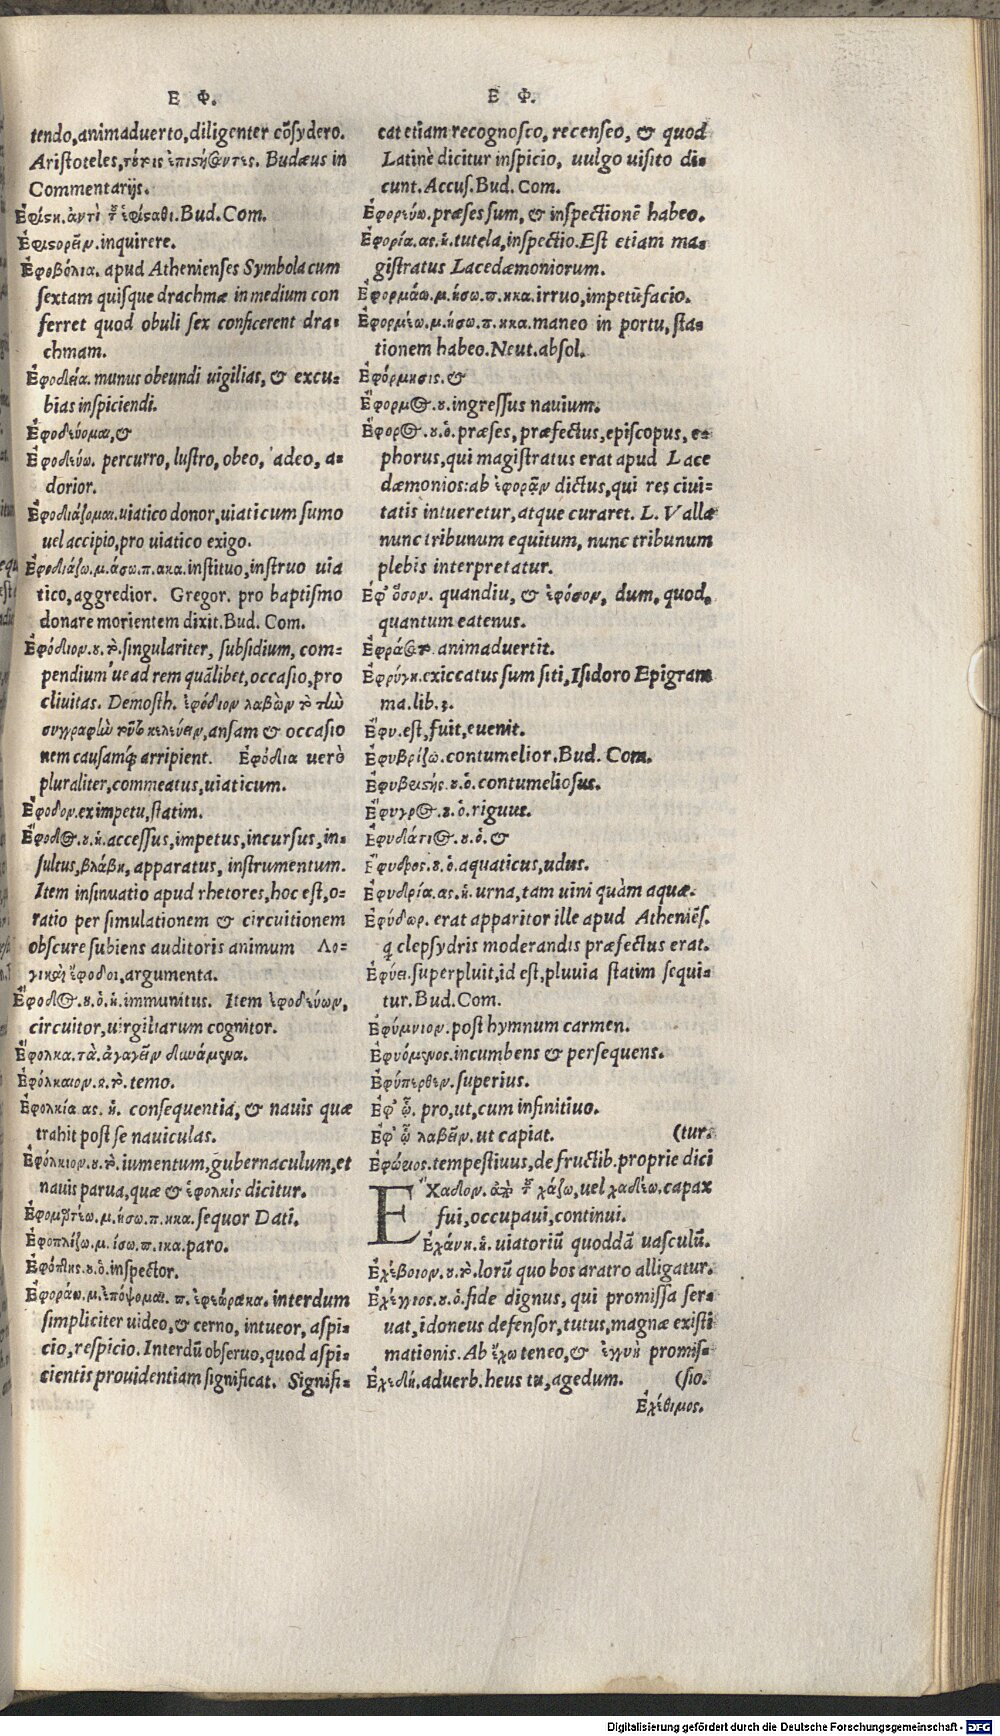 Ε Φ.
tendo, animaduerto, diligenter cōsydero.
Aristoteles, τούτοις ἐπιστήσαντες. Budæus in
Commentarijs.
Ἐφίστη. ἀντὶ τοῦ ἐφίσταθι. Bud. Com.
Ἐφιστορεῖν. inquirere.
Ἐφοβόλια. apud Athenienses Symbola cum
sextam quisque drachmæ in medium con
ferret quod obuli sex conficerent dra-
chmam.
Ἐφοδεία. munus obeundi uigilias, & excu-
bias inspiciendi.
Ἐφοδεύομαι, &
Ἐφοδεύω. percurro, lustro, obeo, adeo, a-
dorior.
Ἐφοδιάζομαι. uiatico donor, uiaticum sumo
uel accipio, pro uiatico exigo.
Ἐφοδιάζω. μ. άσω. π. ακα. instituo, instruo uia
tico, aggredior. Gregor. pro baptismo
donare morientem dixit. Bud. Com.
Ἐφόδιον. ου. τὸ. singulariter, subsidium, com-
pendium ue ad rem quālibet, occasio, pro
cliuitas. Demosth. ἐφόδιον λαβὼν τὸ τὼ
συγγραφὼ κελεύειν, ansam & occasio
nem causamq́; arripient. Ἐφόδια uerò
pluraliter, commeatus, uiaticum.
Ἔφοδον. ex impetu, statim.
Ἔφοδος. ου. ἡ. accessus, impetus, incursus, in-
sultus, βλάβη, apparatus, instrumentum.
Item insinuatio apud rhetores, hoc est, o-
ratio per simulationem & circuitionem
obscure subiens auditoris animum Λο-
γικαὶ ἔφοδοι, argumenta.
Ἔφοδος. ου. ὁ. ἡ. immunitus. Item ἐφοδεύων,
circuitor, uirgiliarum cognitor.
Ἔφολκα. τὰ. ἀγαγεῖν δυνάμενα.
Ἐφόλκαιον. ου. τὸ. temo.
Ἐφολκία. ας. ἡ. consequentia, & nauis quæ
trahit post se nauiculas.
Ἐφόλκιον. ου. τὸ. iumentum, gubernaculum, et
nauis parua, quæ & ἐφολκὶς dicitur.
Ἐφομαρτέω. μ. ήσω. π. ηκα. sequor Dati.
Ἐφοπλίζω. μ. ίσω. π. ικα. paro.
Ἐφόπτης. ου. ὁ. inspector.
Ἐφοράω. μ. ἐπόψομαι. π. ἐφεώρακα. interdum
simpliciter uideo, & cerno, intueor, aspi-
cio, respicio. Interdū obseruo, quod aspi-
cientis prouidentiam significat. Signifi-
Ε Φ.
cat etiam recognosco, recenseo, & quod
Latinè dicitur inspicio, uulgo uisito di-
cunt. Accus. Bud. Com.
Ἐφορεύω. præses sum, & inspectionē habeo.
Ἐφορία. ας. ἡ. tutela, inspectio. Est etiam ma-
gistratus Lacedæmoniorum.
Ἐφορμάω. μ. ήσω. π. ηκα. irruo, impetū facio.
Ἐφορμέω. μ. ήσω. π. ηκα. maneo in portu, sta-
tionem habeo. Neut. absol.
Ἐφόρμησις. &
Ἔφορμος. ου. ingressus nauium.
Ἔφορος. ου. ὁ. præses, præfectus, episcopus, e-
phorus, qui magistratus erat apud Lace
dæmonios: ab ἐφορᾷν dictus, qui res ciui-
tatis intueretur, atque curaret. L. Vallæ
nunc tribunum equitum, nunc tribunum
plebis interpretatur.
Ἐφ' ὅσον. quandiu, & ἐφόσον, dum, quod,
quantum eatenus.
Ἐφράσατο. animaduertit.
Ἐφρύγη. exiccatus sum siti, Isidoro Epigram
ma. lib. 3.
Ἔφυ. est, fuit, euenit.
Ἐφυβρίζω. contumelior. Bud. Com.
Ἐφυβριστής. ου. ὁ. contumeliosus.
Ἔφυγρος. ου. ὁ. riguus.
Ἐφυδάτιος. ου. ὁ. &
Ἔφυδρος. ου. ὁ. aquaticus, udus.
Ἐφυδρία. ας. ἡ. urna, tam uini quàm aquæ.
Ἐφύδωρ. erat apparitor ille apud Atheniēs.
q clepsydris moderandis præfectus erat.
Ἐφύει. superpluit, id est, pluuia statim sequi-
tur. Bud. Com.
Ἐφύμνιον. post hymnum carmen.
Ἐφυόμενος. incumbens & persequens.
Ἐφύπερθεν. superius.
Ἐφ' ᾧ. pro, ut, cum infinitiuo.
Ἐφ' ᾧ λαβεῖν. ut capiat. (tur.
Ἐφώριος. tempestiuus, de fructib. proprie dici
ἜΧαδον. ἀπὸ τοῦ χάζω, uel χαδέω. capax
fui, occupaui, continui.
Ἐχάνη. ἡ. uiatoriū quoddā uasculū.
Ἐχέβοιον. ου. τὸ. lorū quo bos aratro alligatur.
Ἐχέγγιος. ου. ὁ. fide dignus, qui promissa ser-
uat, idoneus defensor, tutus, magnæ existi
mationis. Ab ἔχω teneo, & ἐγγύη promis-
Ἐχεδή. aduerb. heus tu, agedum. (sio.
Ἐχέθιμος.
Digitalisierung gefördert durch die Deutsche Forschungsgemeinschaft - DFG